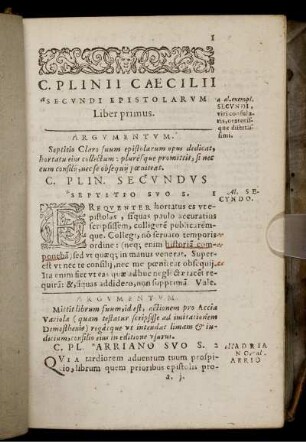 1
C. PLINII CAECILII
SECVNDI EPISTOLARVM
Liber primus.
a al. exempl.
SECVNDI,
viri consula-
ris,
ARGVMENTVM.
Septitio Claro suum epistolarum opus dedicat,
hortatu eius collectum: pluresque promittit, si nec
eum consilii, nec se obsequij poeniteat.
C. PLIN. SECVNDVS
SEPTITIO SVO S. 1
Al. SE-
CVNDO.
FREQVENTER hortatus es vt e-
pistolas, siquas paulo accuratius
scripsissem, colligerē publicarem-
que. Collegi, nō seruato temporis
ordine: (neq; enim historiā com-
ponebā) sed vt quæq; in manus venerat. Super-
est vt nec te consilij, nec me pœniteat obsequij.
Ita enim fiet vt eas quæ adhuc neglectæ iacēt re-
quirā: &, siquas addidero, non supprimā. Vale.
ARGVMENTVM.
Mittit librum suum, id est, actionem pro Accia
Variola (quam testatur scripsisse ad imitationem
Demosthenis) rogatque vt intendat limam & iu-
dicium: consilio eius in editione vsurus.
C. PL. ARRIANO SVO S. 2
HADRIA
NO. al.
ARRIO
QVIA tardiorem aduentum tuum prospi-
cio, librum quem prioribus epistolis pro-
a. j.